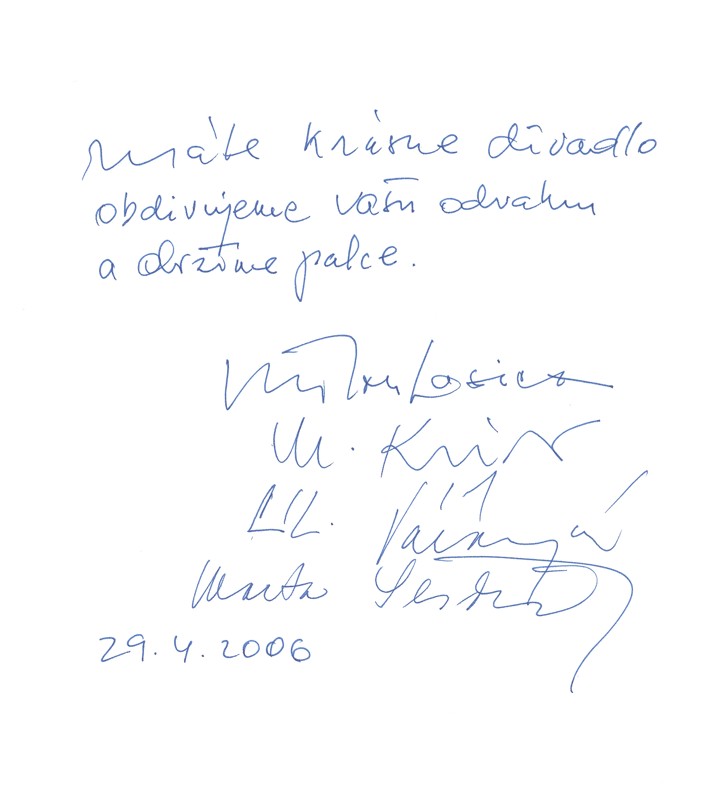 máte krásne divadlo
obdivujeme vašu odvahu
a držíme palce.
Milan Lasica
M.
Marta
29. 4. 2006